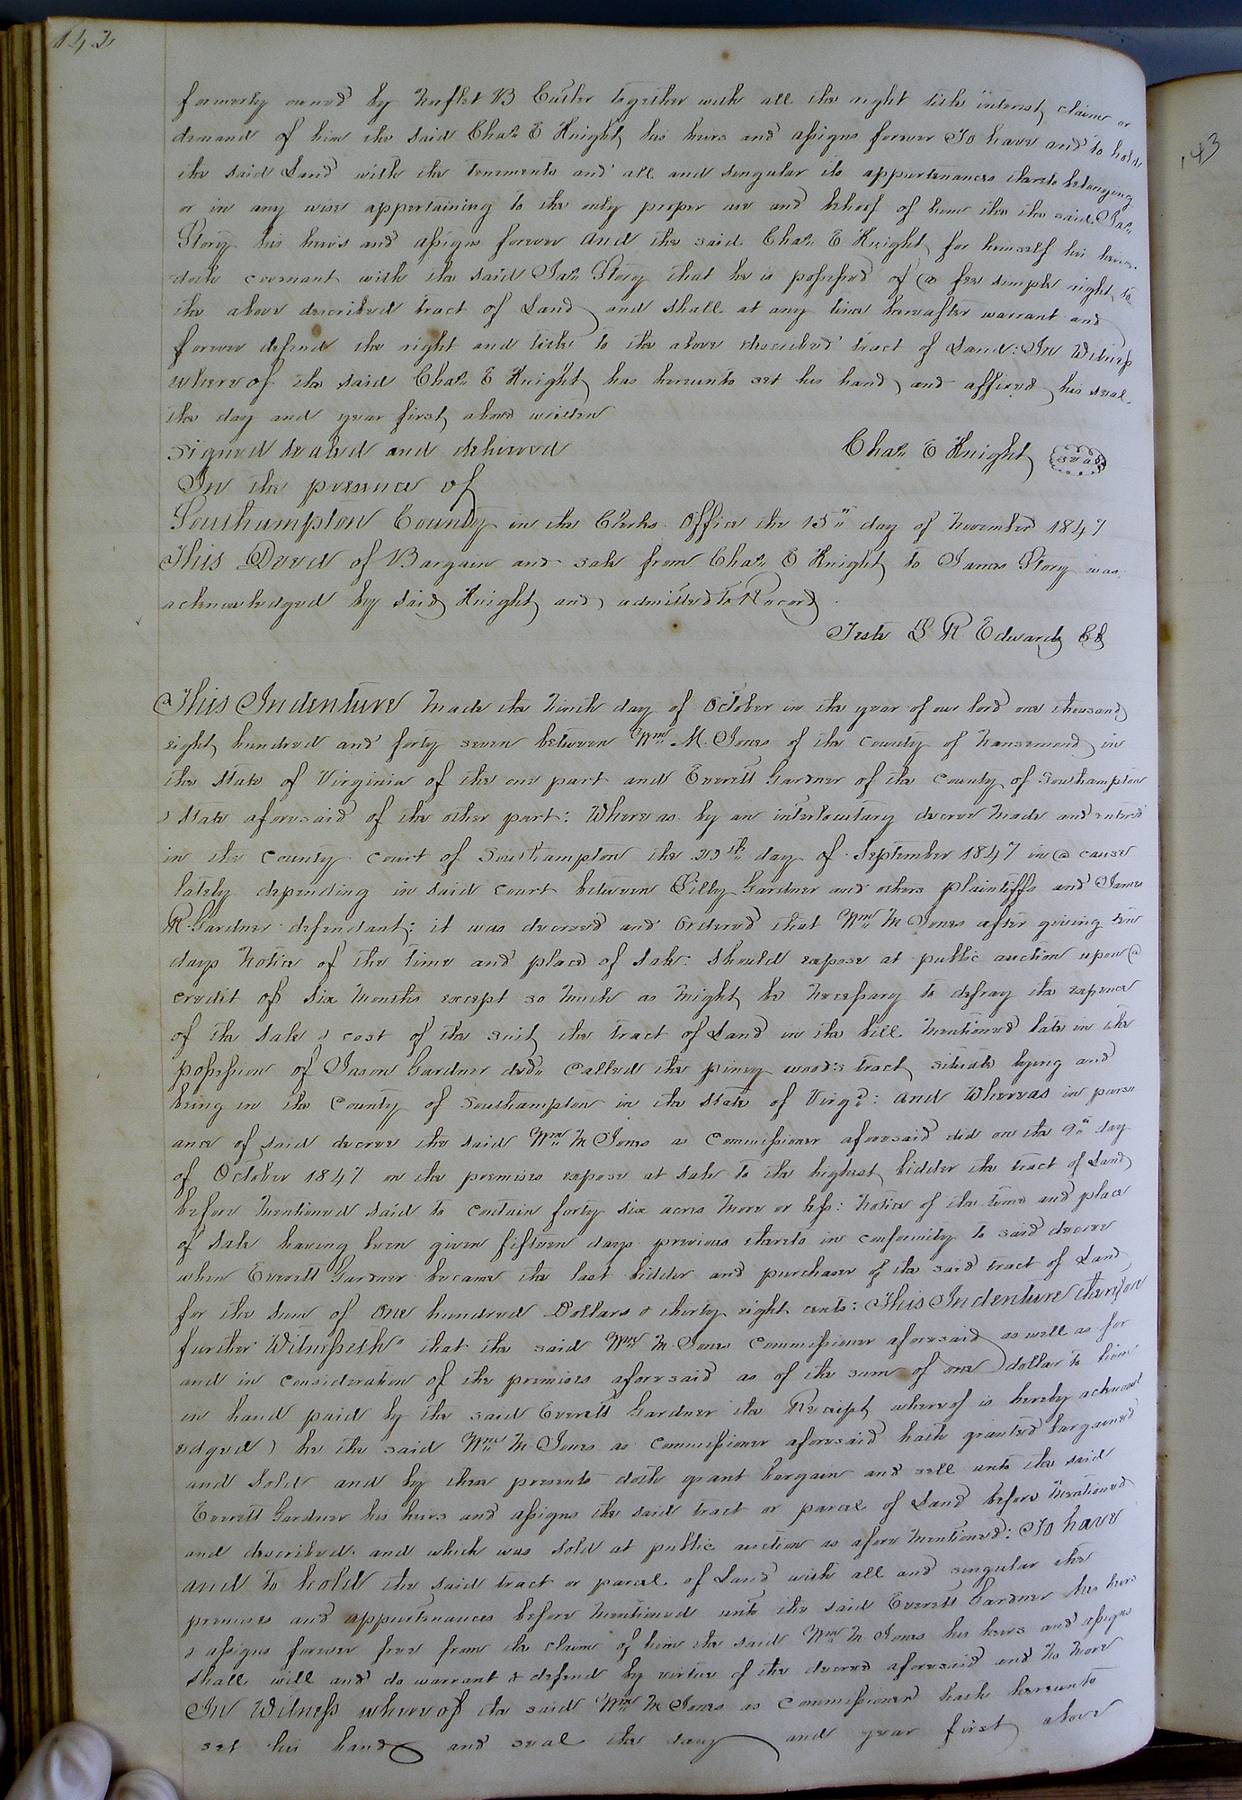 142
143
formerly owned by B Butler together with all the right title interest claim or
demand of him the said Chas E Knight his heirs and assigns forever To have and to hold
the said Land with the tenements and all and singular its appurtenances thereto belonging
or in any wise appertaining to the only proper use and behoof of him the the said Jas
Story his heirs and assigns forever and the said Chas E Knight for himself his heirs
doth covenant with the said Jas Story that he is possessed of @ fee simple right to
the above described tract of Land and shall at any time hereafter warrant and
forever defend the right and title to the above described tract of Land: In Witness
whereof the said Chas E Knight has hereunto set his hand and affixed his seal.
the day and year first above written
signed sealed and delivered Chas E Knight seal
In the presence of
Southampton County in the Clerks Office the 15" day of November 1847
This Deed of Bargain and sale from Chas E Knight to James Story was
acknowledged by said Knight and admitted to Record
Teste L R Edwards Clk
This Indenture Made the Ninth day of October in the year of our lord one thousand
eight hundred and forty seven between Wm M. Jones of the county of Nansemond in
the State of Virginia of the one part and Everett Gardner of the County of Southampton
& State aforesaid of the other part: Whereas by an interlocutary decree made and entered
in the county court of Southampton the 23rd day of September 1847 in @ cause
lately depending in said court between Gardner and others plaintiffs and James
R Gardner defendant: it was decreed and ordered that Wm M Jones after giving ten
days Notice of the time and place of sale: should expose at public auction upon @
credit of Six Months except so much as might be Necessary to defray the expence
of the sale & cost of the suit the tract of Land in the bill mentioned late in the
possession of Jason Gardner decd called the piney woods tract situate lying and
being in the County of Southampton in the State of Virga: and Whereas in pursu
ance of said decree the said Wm M Jones as Commissioner aforesaid did on the 9" day
of October 1847 on the premises expose at sale to the highest bidder the tract of Land
before Mentioned said to contain forty six acres More or less: Notice of the time and place
of sale having been given fifteen days previous thereto in conformity to said decree
when Everett Gardner became the last bidder and purchaser of the said tract of Land
for the sum of One hundred Dollars & thirty eight cents: This Indenture therefore
further Witnesseth" that the said Wm M Jones Commissioner aforesaid as well as for
and in consideration of the premises aforesaid as of the sum of one dollar to him
in hand paid by the said Everett Gardner the Receipt whereof is hereby acknowl
edged) he the said Wm M Jones as commissioner aforesaid hath granted bargained
and Sold and by these presents doth grant bargain and sell unto the said
Everett Gardner his heirs and assigns the said tract or parcel of Land before mentioned
and described. and which was sold at public auction as afore Mentioned: To have
and to hold the said tract or parcel of Land with all and singular the
premises and appurtenances before mentioned unto the said Everett Gardner his heirs
& assigns forever free from the claim of him the said Wm M Jones his heirs and assigns
shall will and do warrant & defend by virtue of the decree aforesaid and No more
In Witness whereof the said Wm M Jones as Commissioner hath hereunto
set his hand and seal the day and year first above